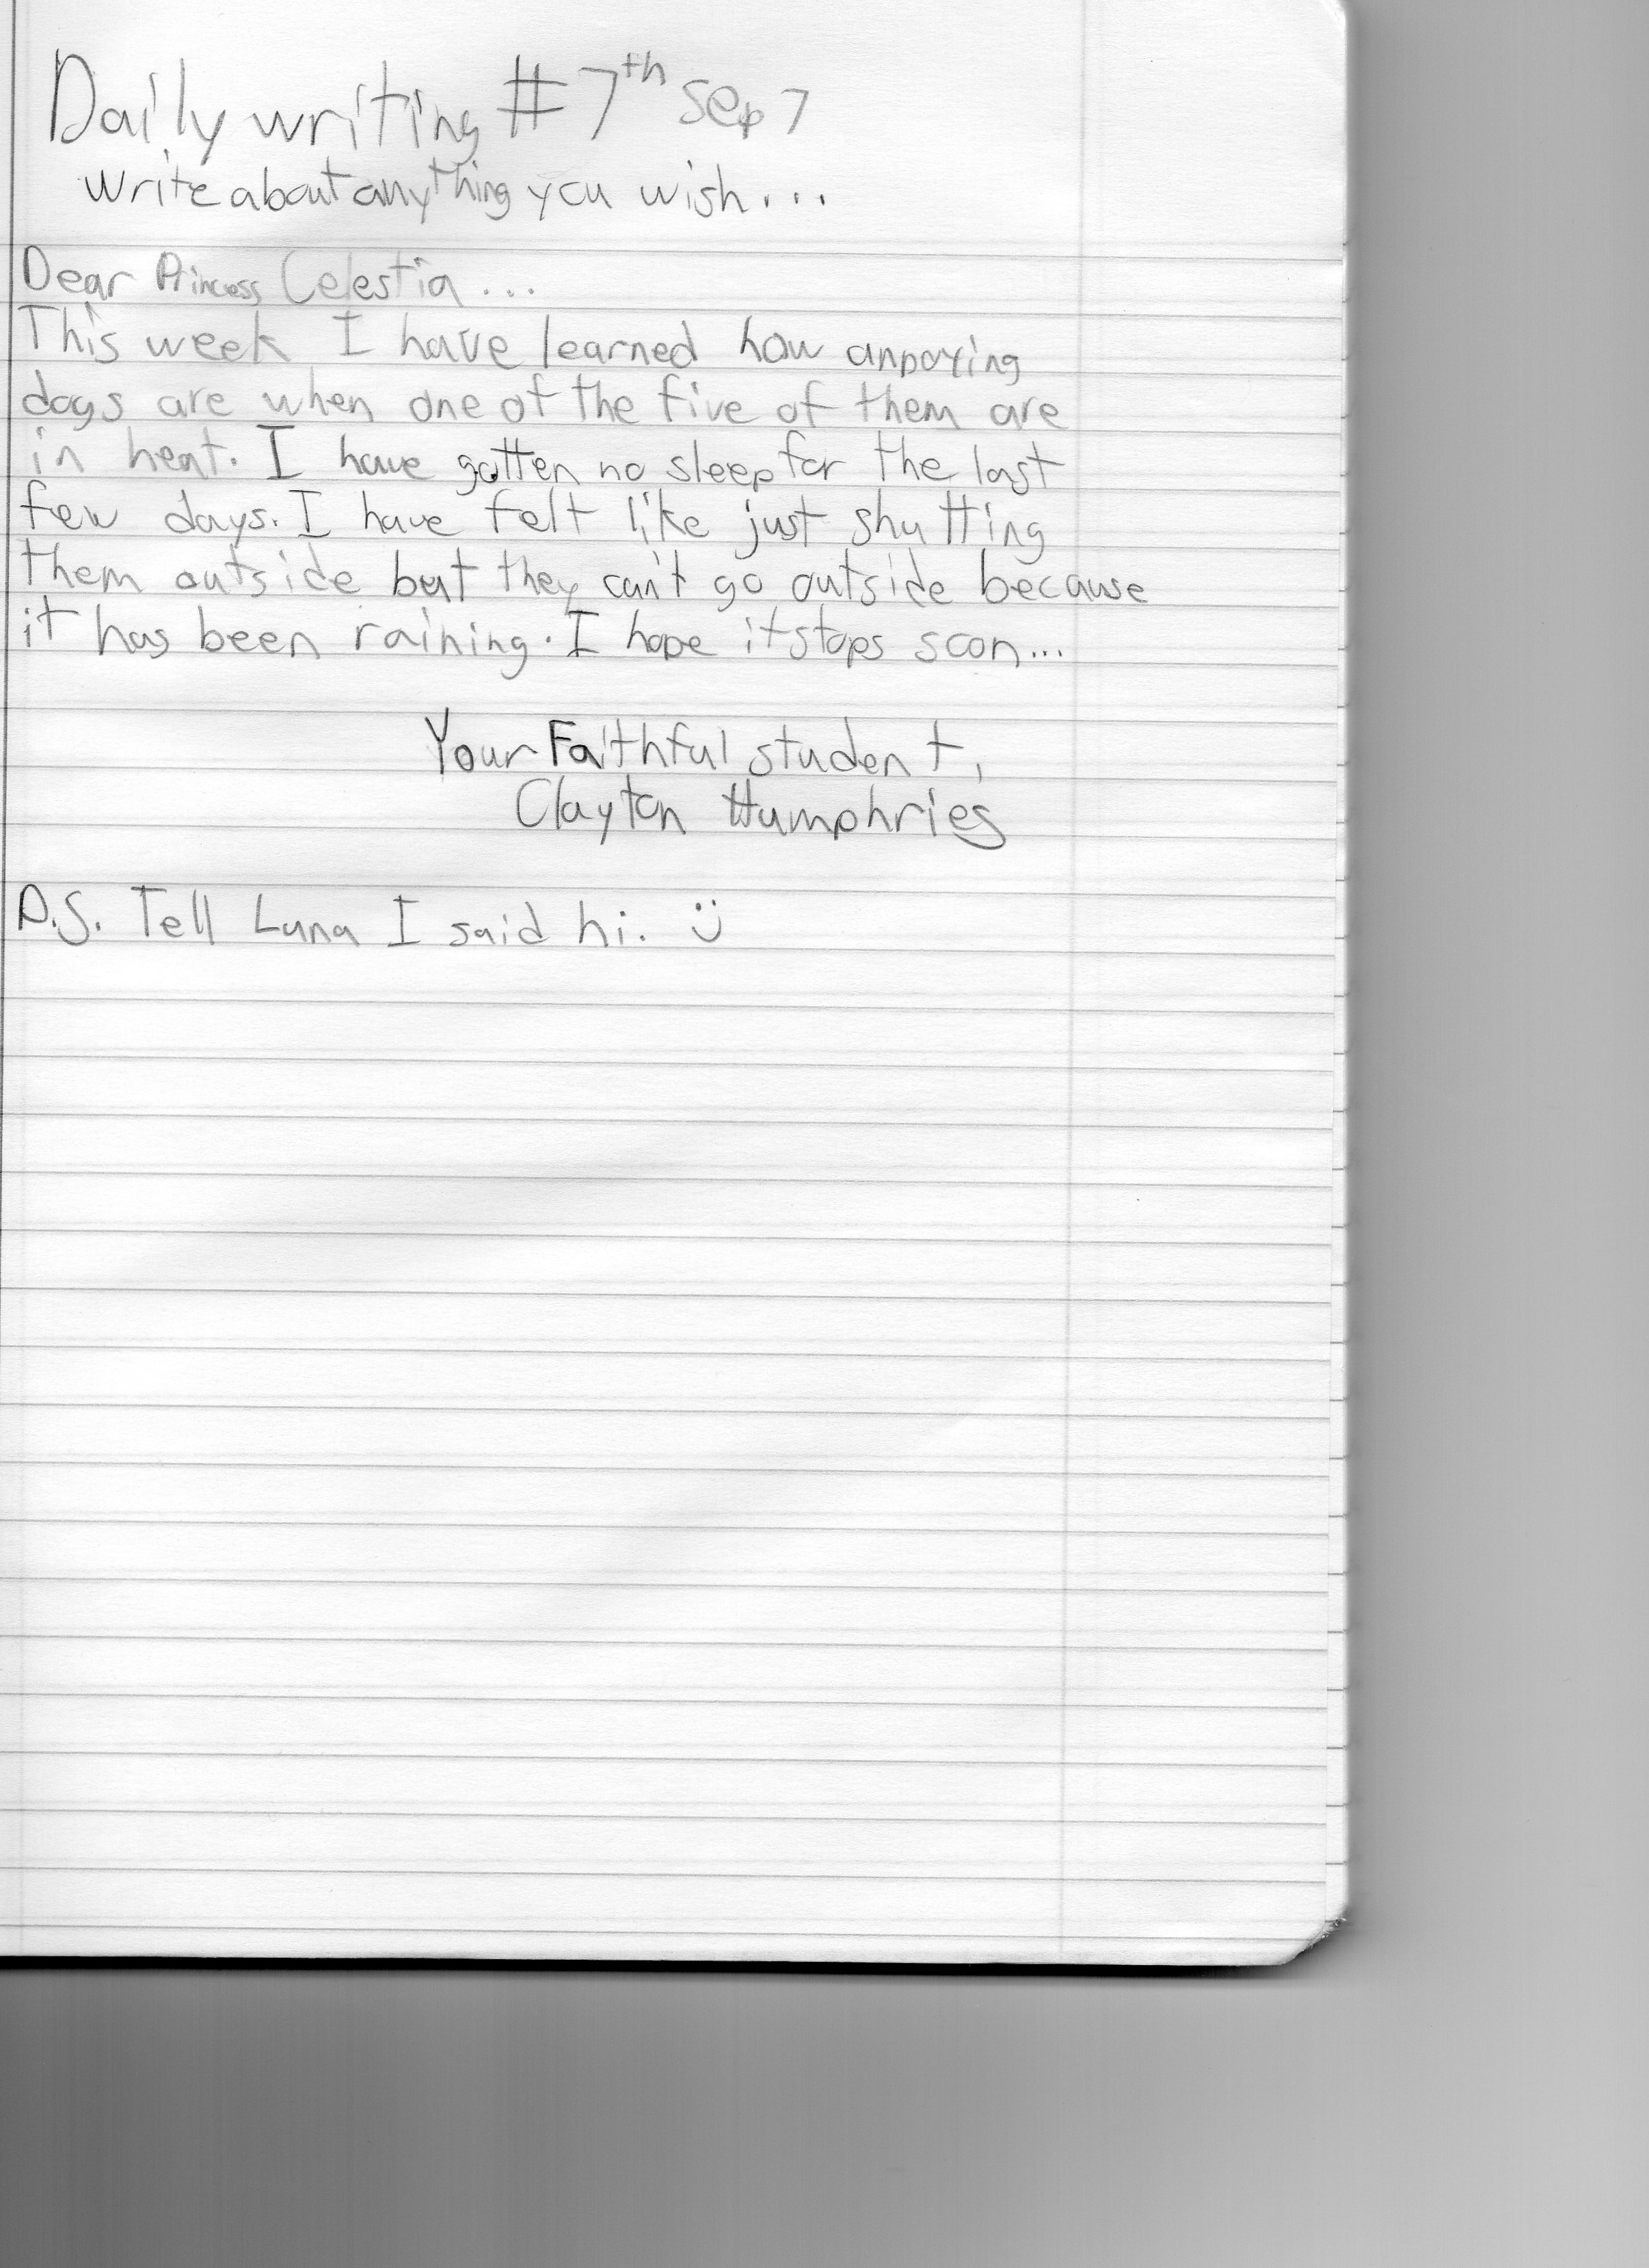 Daily writing #7th Sep 7
Write about anything you wish...
Dear Princess Celestia...
This week I have learned how annoying
dogs are when one of the five of them are
in heat. I have gotten no sleep for the last
few days. I have felt like just shutting
them outside but they can't go outside because
it has been raining. I hope it stops soon...
Your Faithful student,
Clayton Humphries
P.S. Tell Luna I said hi. :)